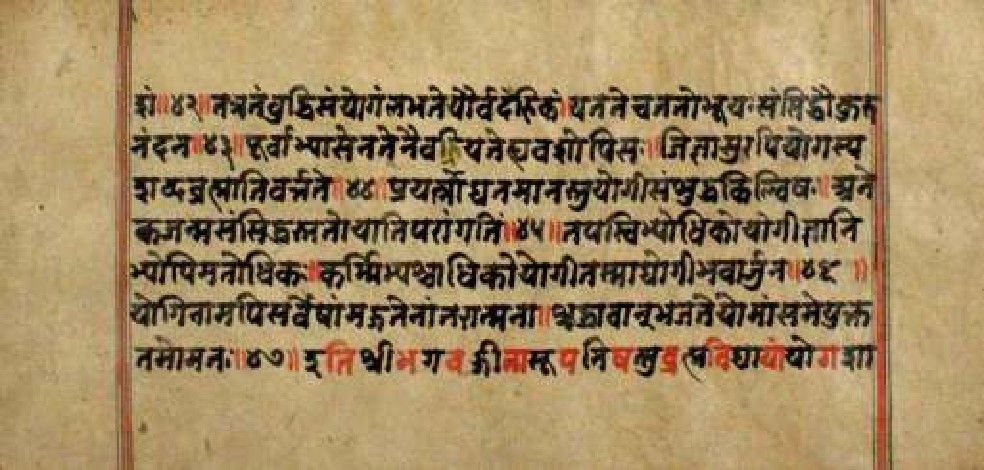 शं॥४२॥तत्रतंबुद्धिसंयोगंलभतेपौर्वदेहिकं॥यततेचततोभूयःसंसिद्धौकुरु
नंदन॥४३॥पूर्वाभ्यासेनतेनैवह्रियतेह्यवशोपिसः॥जिज्ञासुरपियोगस्य
शब्दब्रह्मातिवर्त्तते॥४४॥प्रयत्नाद्यतमानस्तुयोगीसंशुद्धकिल्बिषः॥अने
कजन्मसंसिद्धस्ततोयातिपरांगतिं॥४५॥तपस्विभ्योधिकोयोगीज्ञानि
भ्योपिमतोधिकः॥कर्मिभ्यश्चाधिकोयोगीतस्माद्योगीभवार्जुन॥४६॥
योगिनामपिसर्वेषांमद्गतेनांतरात्मना॥श्रद्धावान्भजतेयोमांसमेयुक्त
तमोमतः॥४७॥इतिश्रीभगवद्गीतासूपनिषत्सुब्रह्मविद्यायांयोगशा